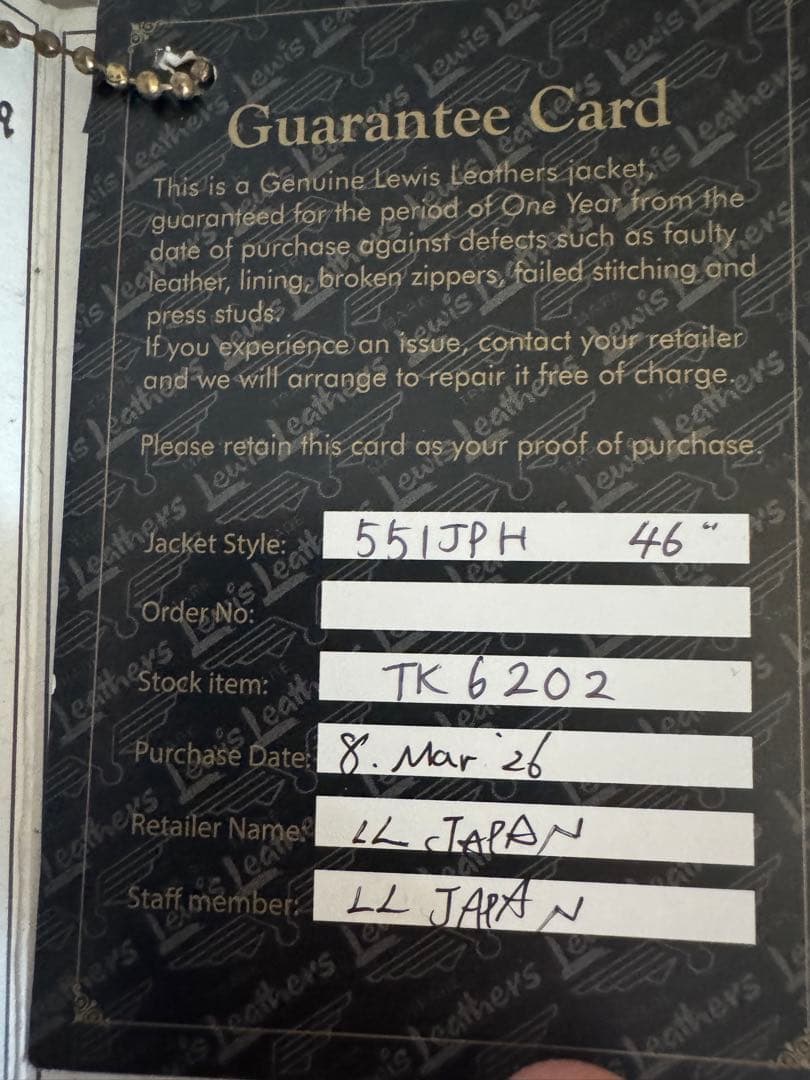 Guarantee Card
This is a Genuine Lewis Leathers jacket,
guaranteed for the period of One Year from the
date of purchase against defects such as faulty
leather, lining, broken zippers, failed stitching and
press studs.
If you experience an issue, contact your retailer
and we will arrange to repair it free of charge.
Please retain this card as your proof of purchase.
Jacket Style: 551JPH 46"
Order No:
Stock item: TK 6202
Purchase Date: 8. Mar '26
Retailer Name: LL JAPAN
Staff member: LL JAPAN